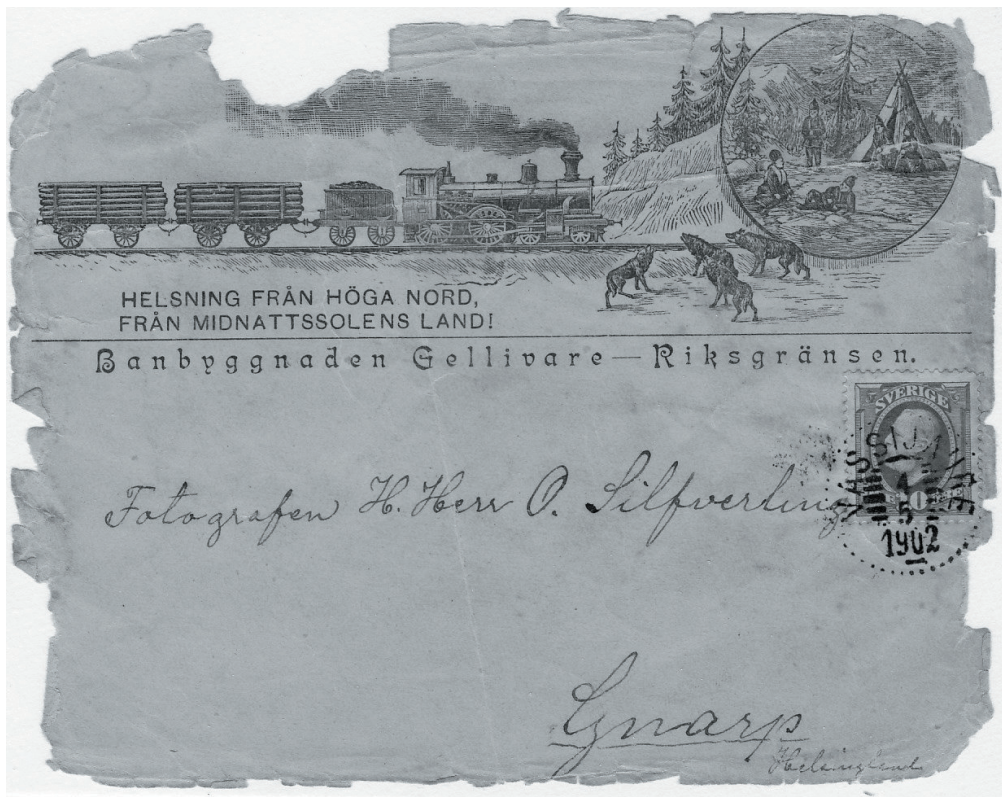 HELSNING FRÅN HÖGA NORD,
FRÅN MIDNATTSSOLENS LAND!
Banbyggnaden Gellivare — Riksgränsen.
SVERIGE
VASSIJAURE
4
5
1902
Fotografen H. Herr O. Silfverling
Gnarp
Helsingland